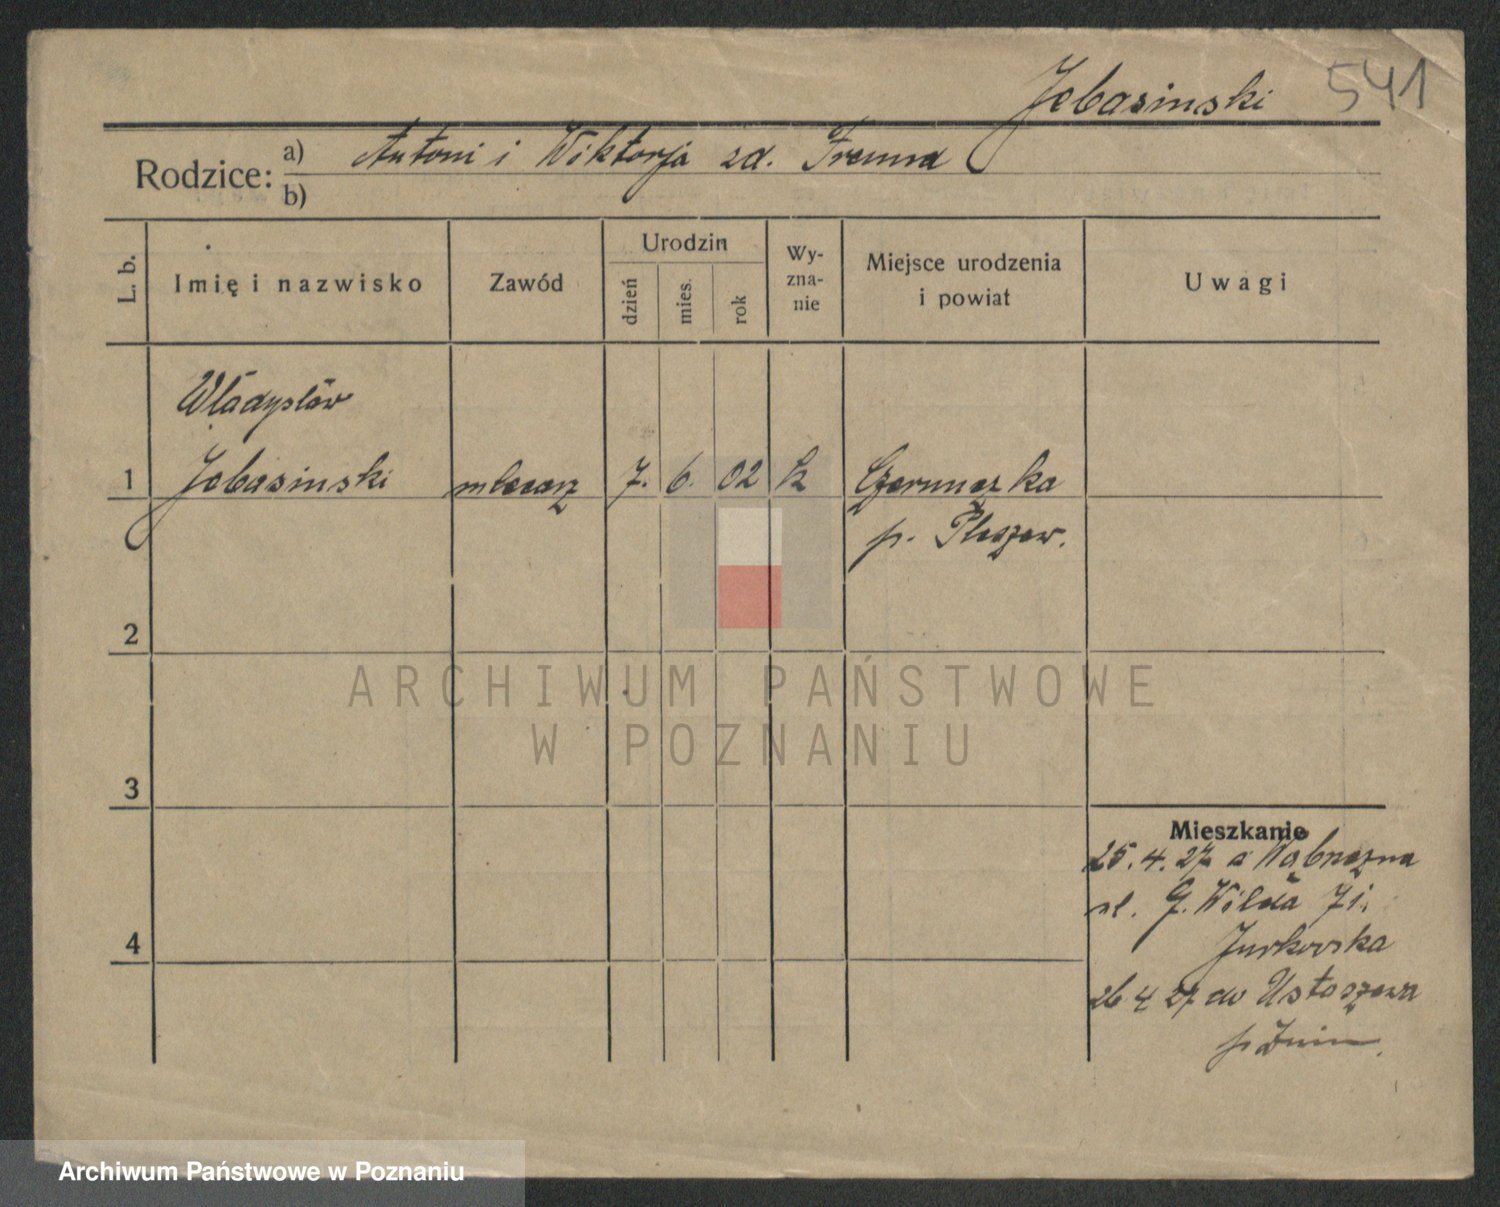 Jebasinski 541
Rodzice: a) Antoni i Wiktorja zd. Freund
b)
L. b. Imię i nazwisko Zawód Urodzin dzień mies. rok Wy-zna-nie Miejsce urodzenia i powiat Uwagi
Władysław
1 Jebasinski mleczarz 7. 6. 02 k
p. Pleszew.
2
ARCHIWUM PAŃSTWOWE
W POZNANIU
3
Mieszkanie
25.4.27 z Wąbrzezna
ul. G. Wilda 71.
Jurkowska
4
26 4 27 do Ustaszewa
p Żnin.
Archiwum Państwowe w Poznaniu